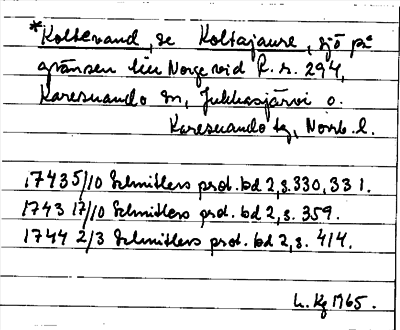 *Koltevand, se Koltajaure, sjö på
gränsen till Norge vid R. r. 294,
Karesuando sn, Jukkasjärvi o.
Karesuando tg, Norrb. l.
1743 5/10 Schnitlers prot. bd 2, s. 330, 331.
1743 17/10 Schnitlers prot. bd 2, s. 359.
1744 2/3 Schnitlers prot. bd 2, s. 414.
1965.